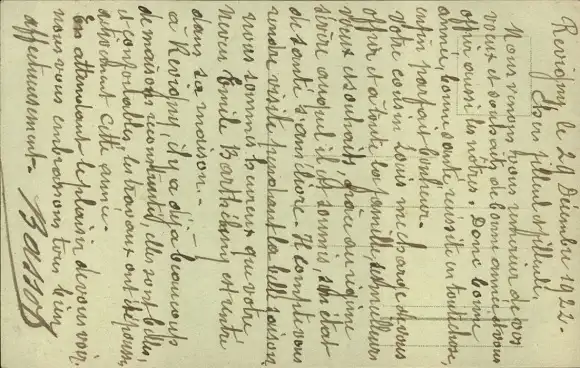 Revigny le 29 Décembre 1922.
Chers filleul et filleule,
Nous venons vous remercier de vos
vœux et souhaits de bonne année et vous
offrir aussi les nôtres. Donc bonne
année, bonne santé, réussite en toute chose,
enfin parfait bonheur.
Votre cousin Louis me charge de vous
offrir et à toute sa famille, ses meilleurs
vœux et souhaits, grâce au régime
sévère auquel il est soumis, son état
de santé s'améliore. Il compte vous
rendre visite pendant la belle saison
nous sommes heureux que votre
neveu Emile Barthélemy est rentré
dans sa maison.
à Revigny, il y a déjà beaucoup
de maisons reconstruites, elles sont belles,
et confortables, les travaux ont été poussés
activement cette année.
En attendant le plaisir de vous voir,
nous vous embrassons tous bien
affectueusement. Bassot